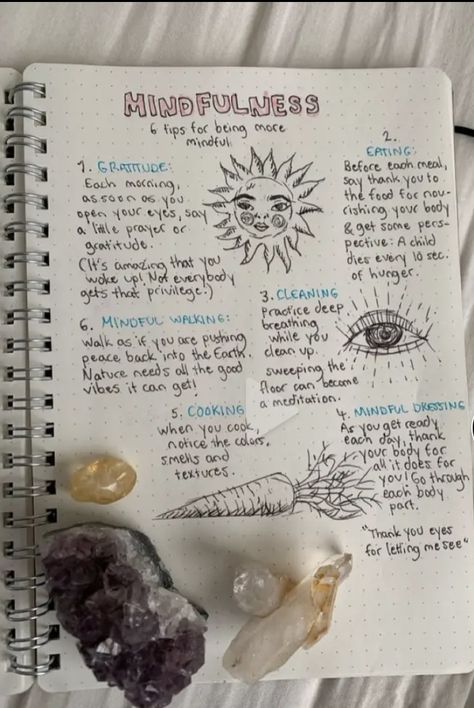 MINDFULNESS
6 tips for being more
mindful
1. GRATITUDE:
Each morning,
as soon as you
open your eyes, say
a little prayer or
gratitude.
(It's amazing that you
woke up! Not everybody
gets that privilege!)
2.
EATING:
Before each meal,
say thank you to
the food for nou-
rishing your body
& get some pers-
pective: A child
dies every 10 sec.
of hunger.
3. CLEANING
practice deep
breathing
while you
clean up.
sweeping the
floor can become
a meditation.
4. MINDFUL DRESSING
As you get ready
each day, thank
your body for
all it does for
you! Go through
each body
part.
"Thank you eyes
for letting me see"
5. COOKING
when you cook,
notice the colors,
smells and
textures.
6. MINDFUL WALKING:
Walk as if you are pushing
peace back into the Earth.
Nature needs all the good
vibes it can get!